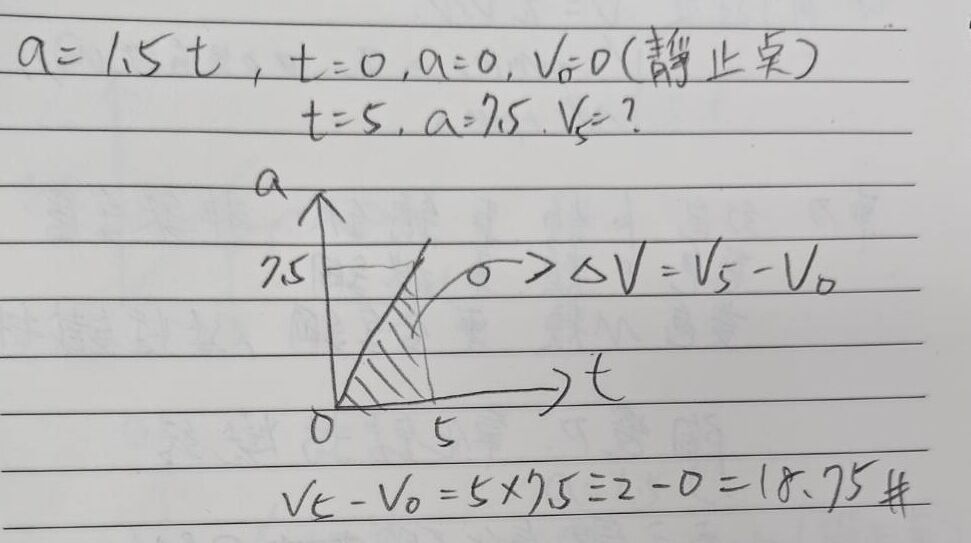 a=1.5t, t=0, a=0, V₀=0(靜止点)
t=5, a=7.5. V₅=?
a
7.5
ΔV=V₅-V₀
t
0
5
V₅-V₀=5×7.5÷2-0=18.75#